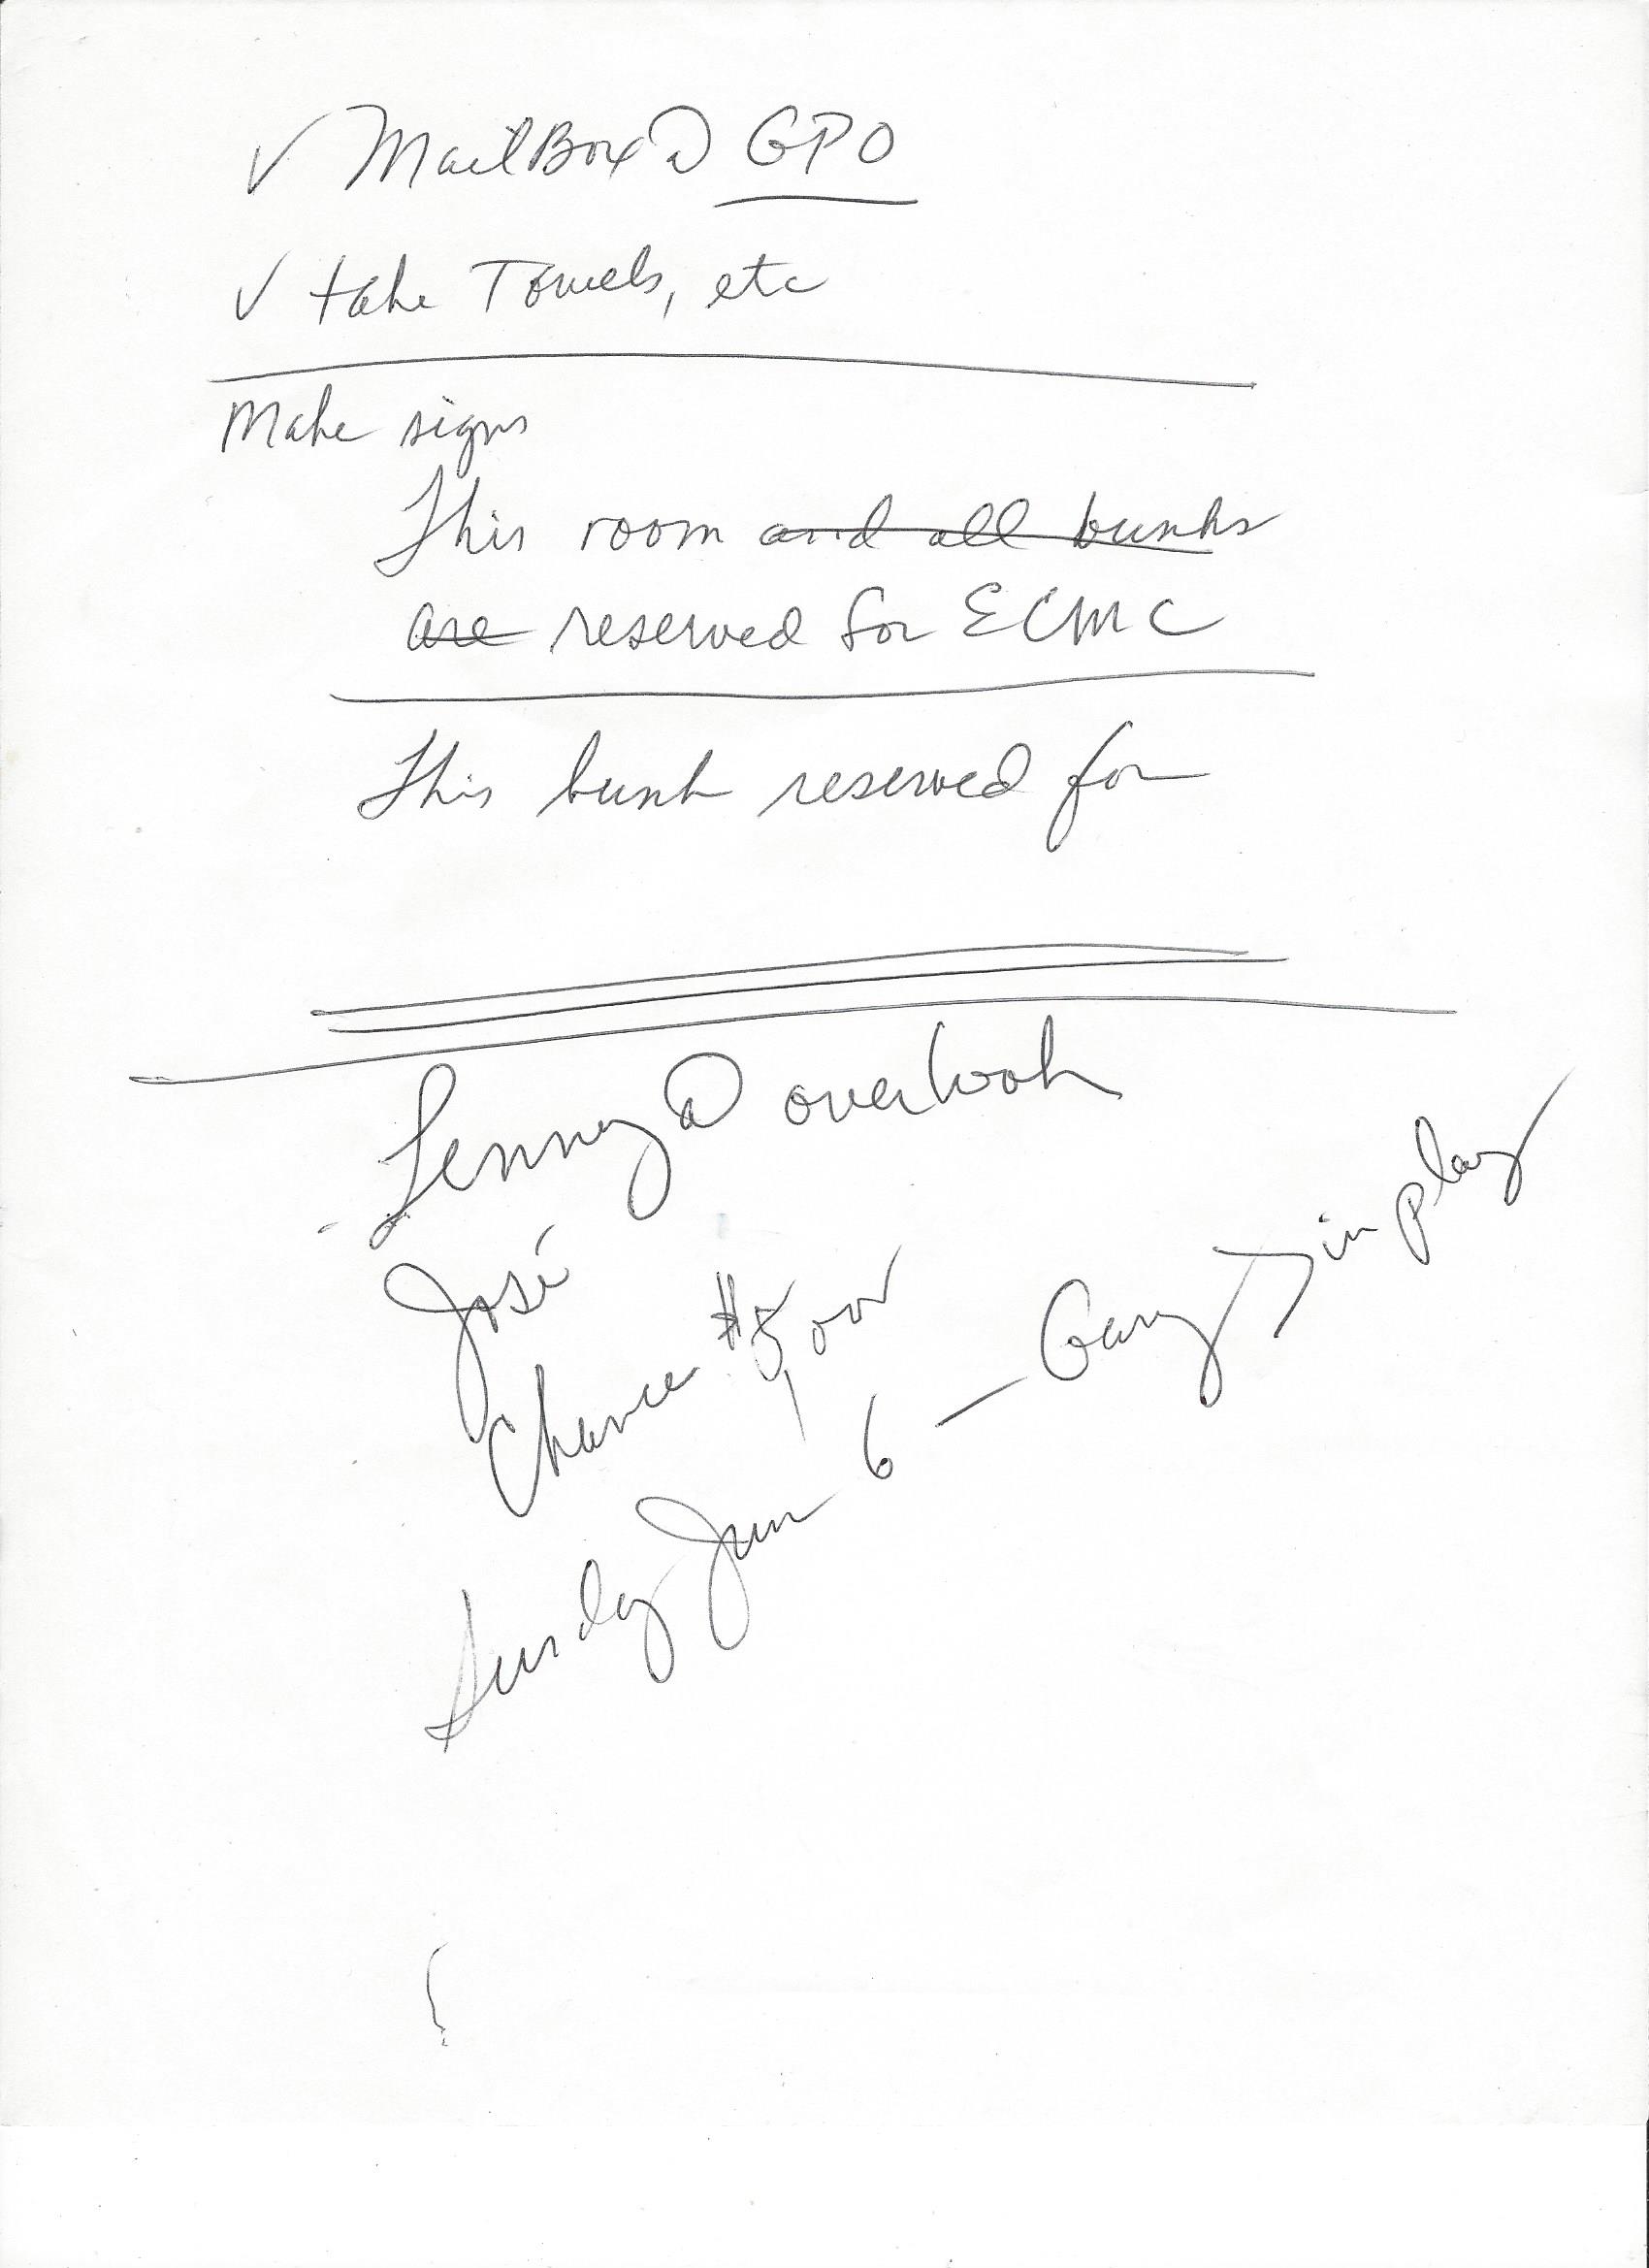 ✓ MailBox @ GPO
✓ take Towels, etc
Make signs
This room and all bunks
are reserved for ECMC
This bunk reserved for
Lenny @ overlook
José
Chance $5,000
Sunday Jun 6 — Gary J in play